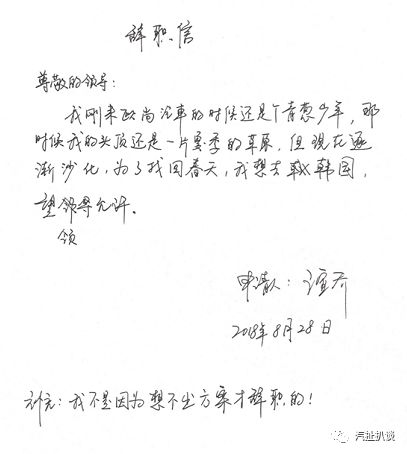 辞职信
尊敬的领导：
我刚来欧尚汽车的时候还是个青葱少年，那
时候我的头顶还是一片夏季的草原，但现在逐
渐沙化，为了找回春天，我想去韩国，
望领导允许。
领
申请人：
2018年8月28日
我不是因为想不出方案才辞职的！
汽扯扒谈